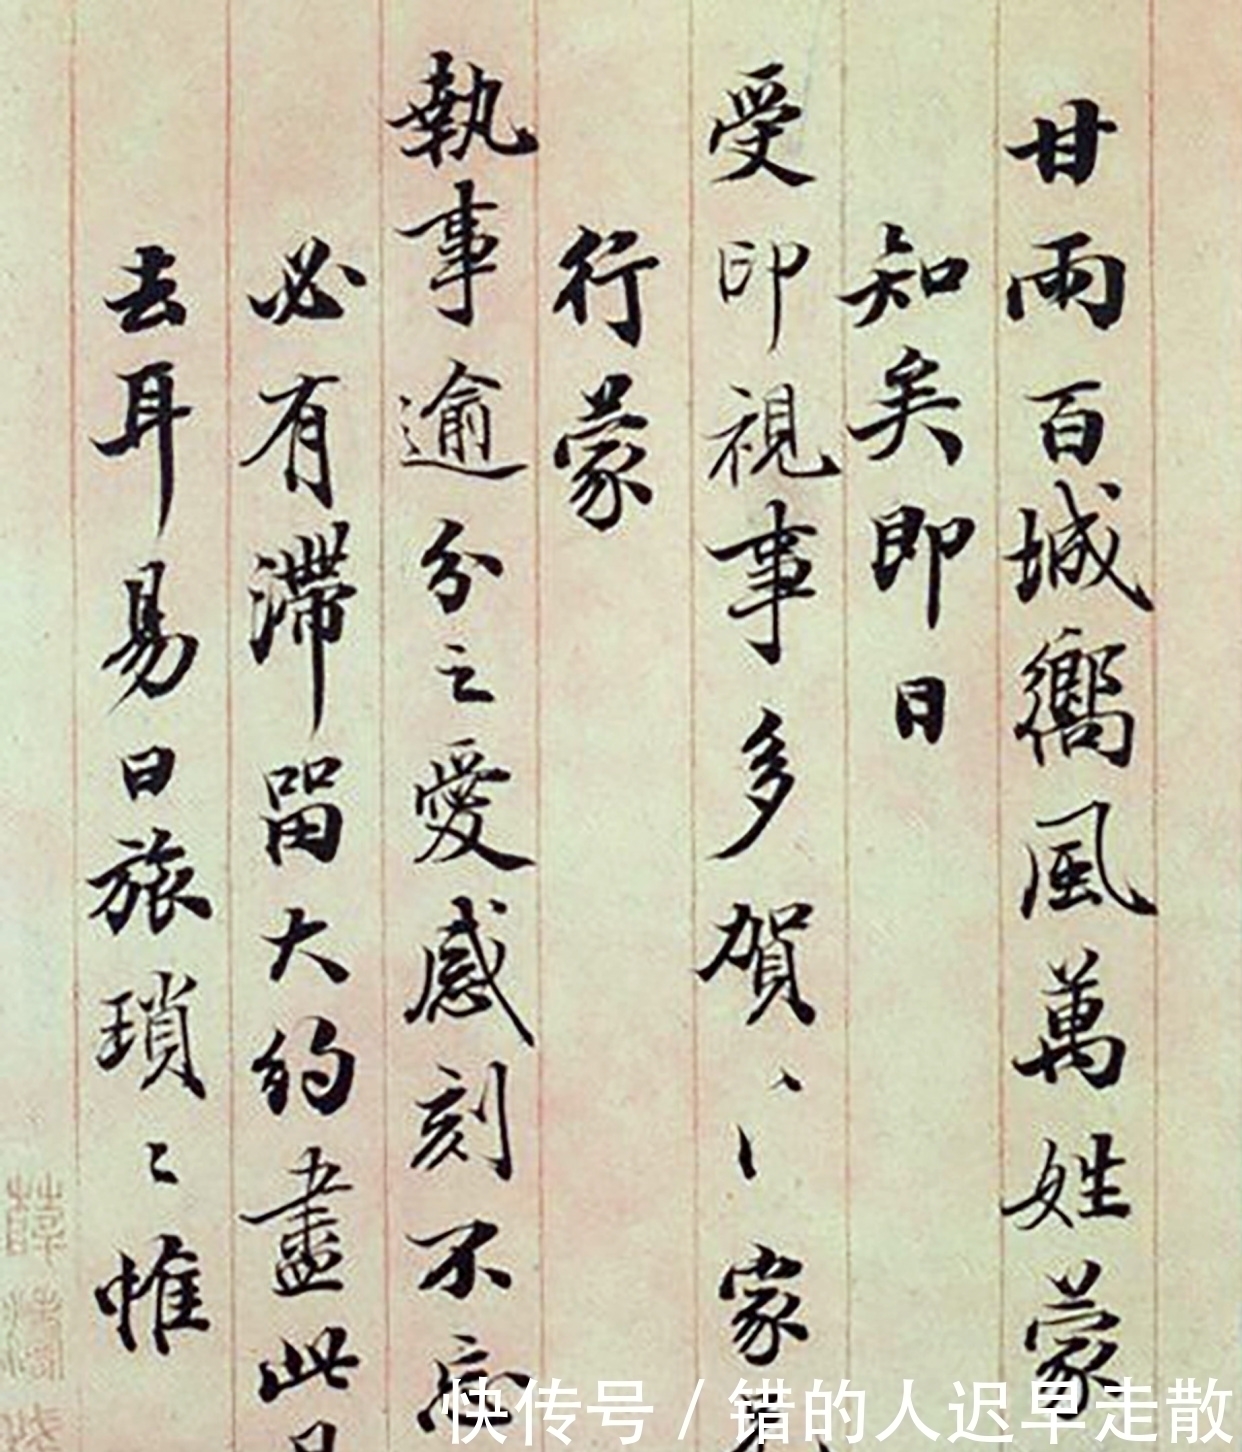 甘雨百城嚮風萬姓蒙
知矣即日
受印視事多賀〻〻家
行蒙
執事逾分之愛感刻不忘
必有滯留大約盡此月
去耳易日旅瑣〻惟
快传号/错的人迟早走散